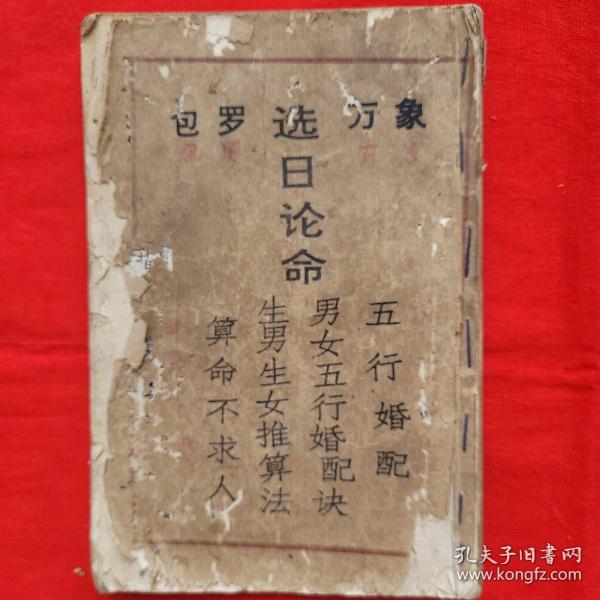 包罗 万象
选日论命
五行婚配
男女五行婚配诀
生男生女推算法
算命不求人
孔夫子旧书网
www.kongfz.com